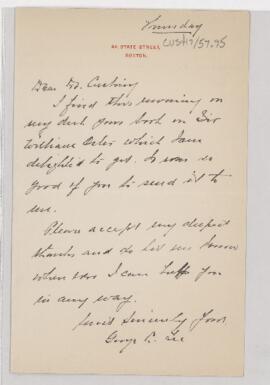 Thursday
CUS417/57.95
44 STATE STREET,
BOSTON.
Dear Dr. Cushing
I find this morning on
my desk your book on Sir
William Osler which I am
delighted to get. It was so
good of you to send it to
me.
Please accept my deepest
thanks and do let me know
when I can help you
in any way.
Most Sincerely Yours
George C. Lee